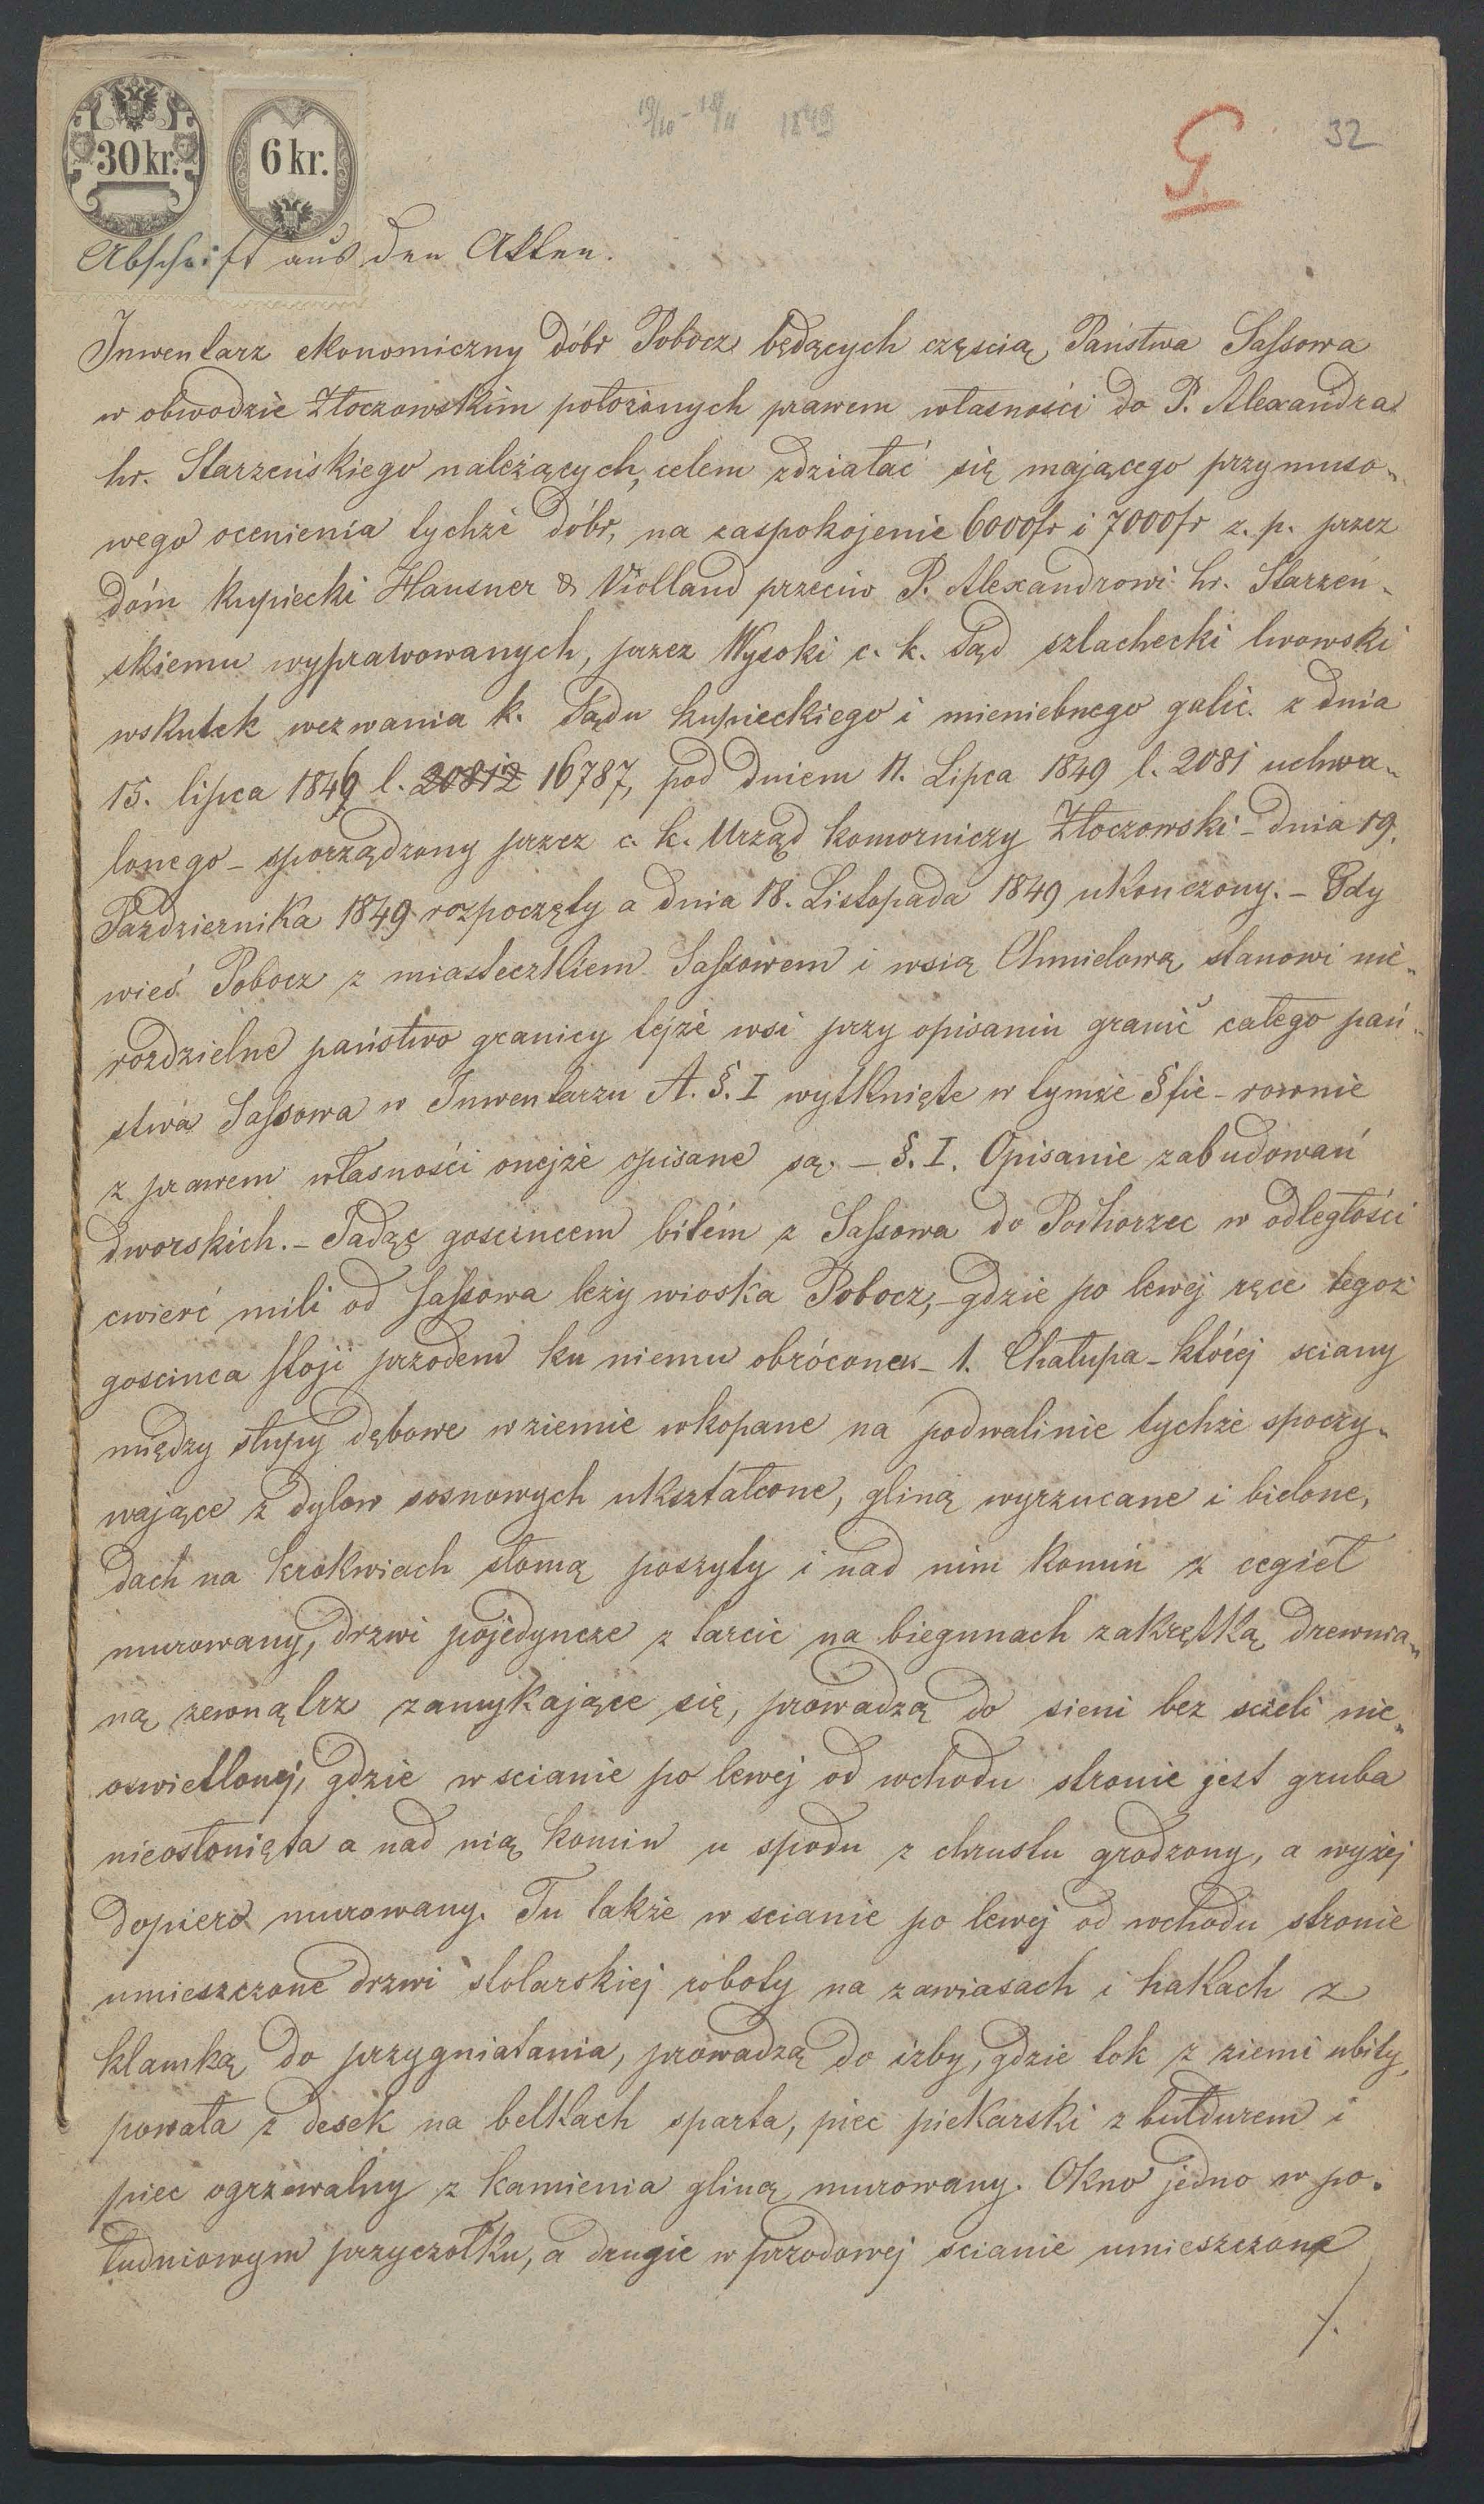 19/10 - 18/11 1849
G
32
30 kr.
6 kr.
Abschrift aus den Akten.
Inwentarz ekonomiczny dóbr Pobocz będących częścią Państwa Sassowa
w obwodzie Złoczowskim położonych prawem własności do P. Alexandra
hr. Starzeńskiego należących, celem zdziałać się mającego przymuso-
wego ocenienia tychże dóbr, na zaspokojenie 6000fr i 7000fr z. p. przez
dóm kupiecki Hausner & Violland przeciw P. Alexandrowi hr. Starzeń-
skiemu wyprawowanych, przez Wysoki c. k. Sąd szlachecki lwowski
wskutek wezwania k. Sądu kupieckiego i mieniebnego galic. z dnia
15. lipca 1849 l. 20812 16787, pod dniem 11. Lipca 1849 l. 2081 uchwa-
lonego - sporządzony przez c. k. Urząd komorniczy Złoczowski - dnia 19.
Pazdziernika 1849 rozpoczęty a dnia 18. Listopada 1849 ukończony. - Gdy
wieś Pobocz z miasteczkiem Sassowem i wsią Chmielową stanowi nie-
rozdzielne państwo granicy tejże wsi przy opisaniu granic całego pań-
stwa Sassowa w Inwentarzu A. §. I wytknięte w tymże §fie - rownie
z prawem własności onejże opisane są. - §. I. Opisanie zabudowań
dworskich. - Jadąc goscincem bitém z Sassowa do Pochorzec w odległości
cwierć mili od Sassowa leży wioska Pobocz, - gdzie po lewej ręce tegoż
goscinca stoji przodem ku niemu obrócona - 1. Chałupa - któréj sciany
między słupy dębowe w ziemie wkopane na podwalinie tychże spoczy-
wające z dylow sosnowych ukształcone, gliną wyrzucane i bielone,
dach na krokwiach słomą poszyty i nad nim komin z cegieł
murowany, drzwi pojedyncze z tarcic na biegunach zakrętką drewnia-
ną zewnątrz zamykające się, prowadzą do sieni bez scieli nie-
oswietlonej, gdzie w scianie po lewej od wchodu stronie jest gruba
nieosłonięta a nad nią komin u spodu z chrustu grodzony, a wyżej
dopiero murowany. Tu także w scianie po lewej od wchodu stronie
umieszczone drzwi stolarskiej roboty na zawiasach i hakach z
klamką do przygniatania, prowadzą do izby, gdzie tok z ziemi ubity,
powała z desek na belkach sparta, piec piekarski z bułdurem i
piec ogrzewalny z kamienia gliną murowany. Okno jedno w po-
łudniowym przyczołku, a drugie w przodowej scianie umieszczone
./.